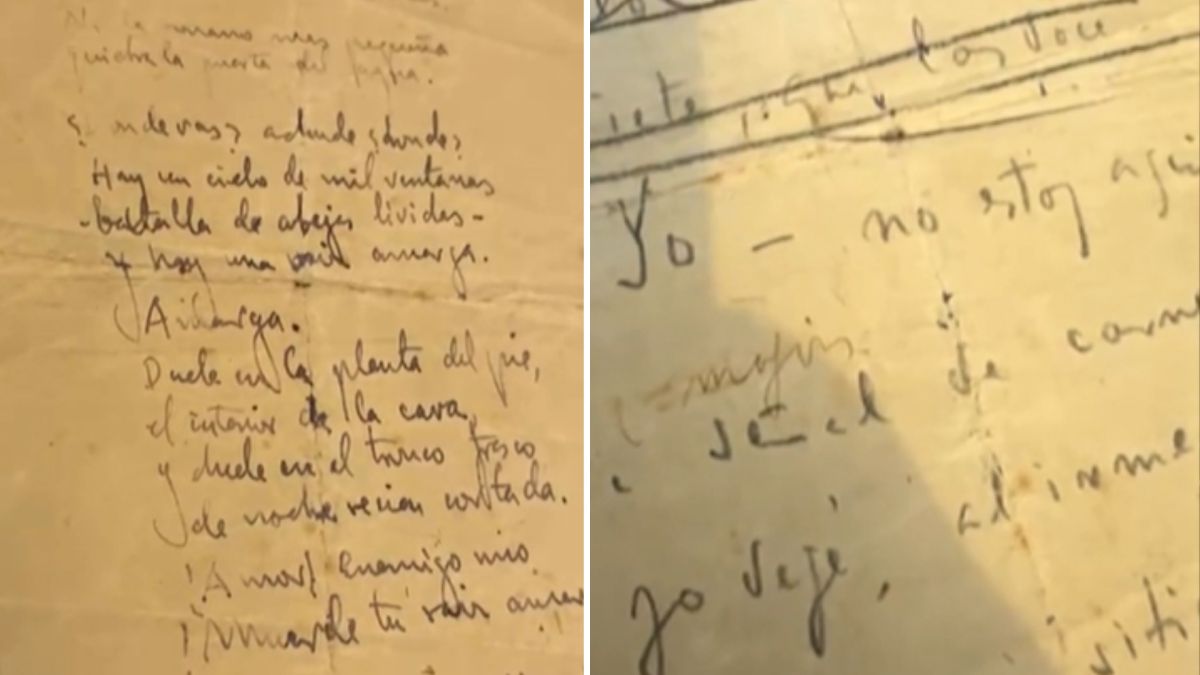 Ni la mano más pequeña
quiebra la puerta del agua.
¿Dónde vas, adónde, dónde?
Hay un cielo de mil ventanas
-batalla de abejas lívidas-
y hay una raíz amarga.
Amarga.
Duele en la planta del pie,
el interior de la cara,
y duele en el tronco fresco
de noche recién cortada.
¡Amor! Enemigo mío
¡Muerde tu raíz amar
los doce
Yo - no estoy aquí
señal de carne
al irme
yo dejé,